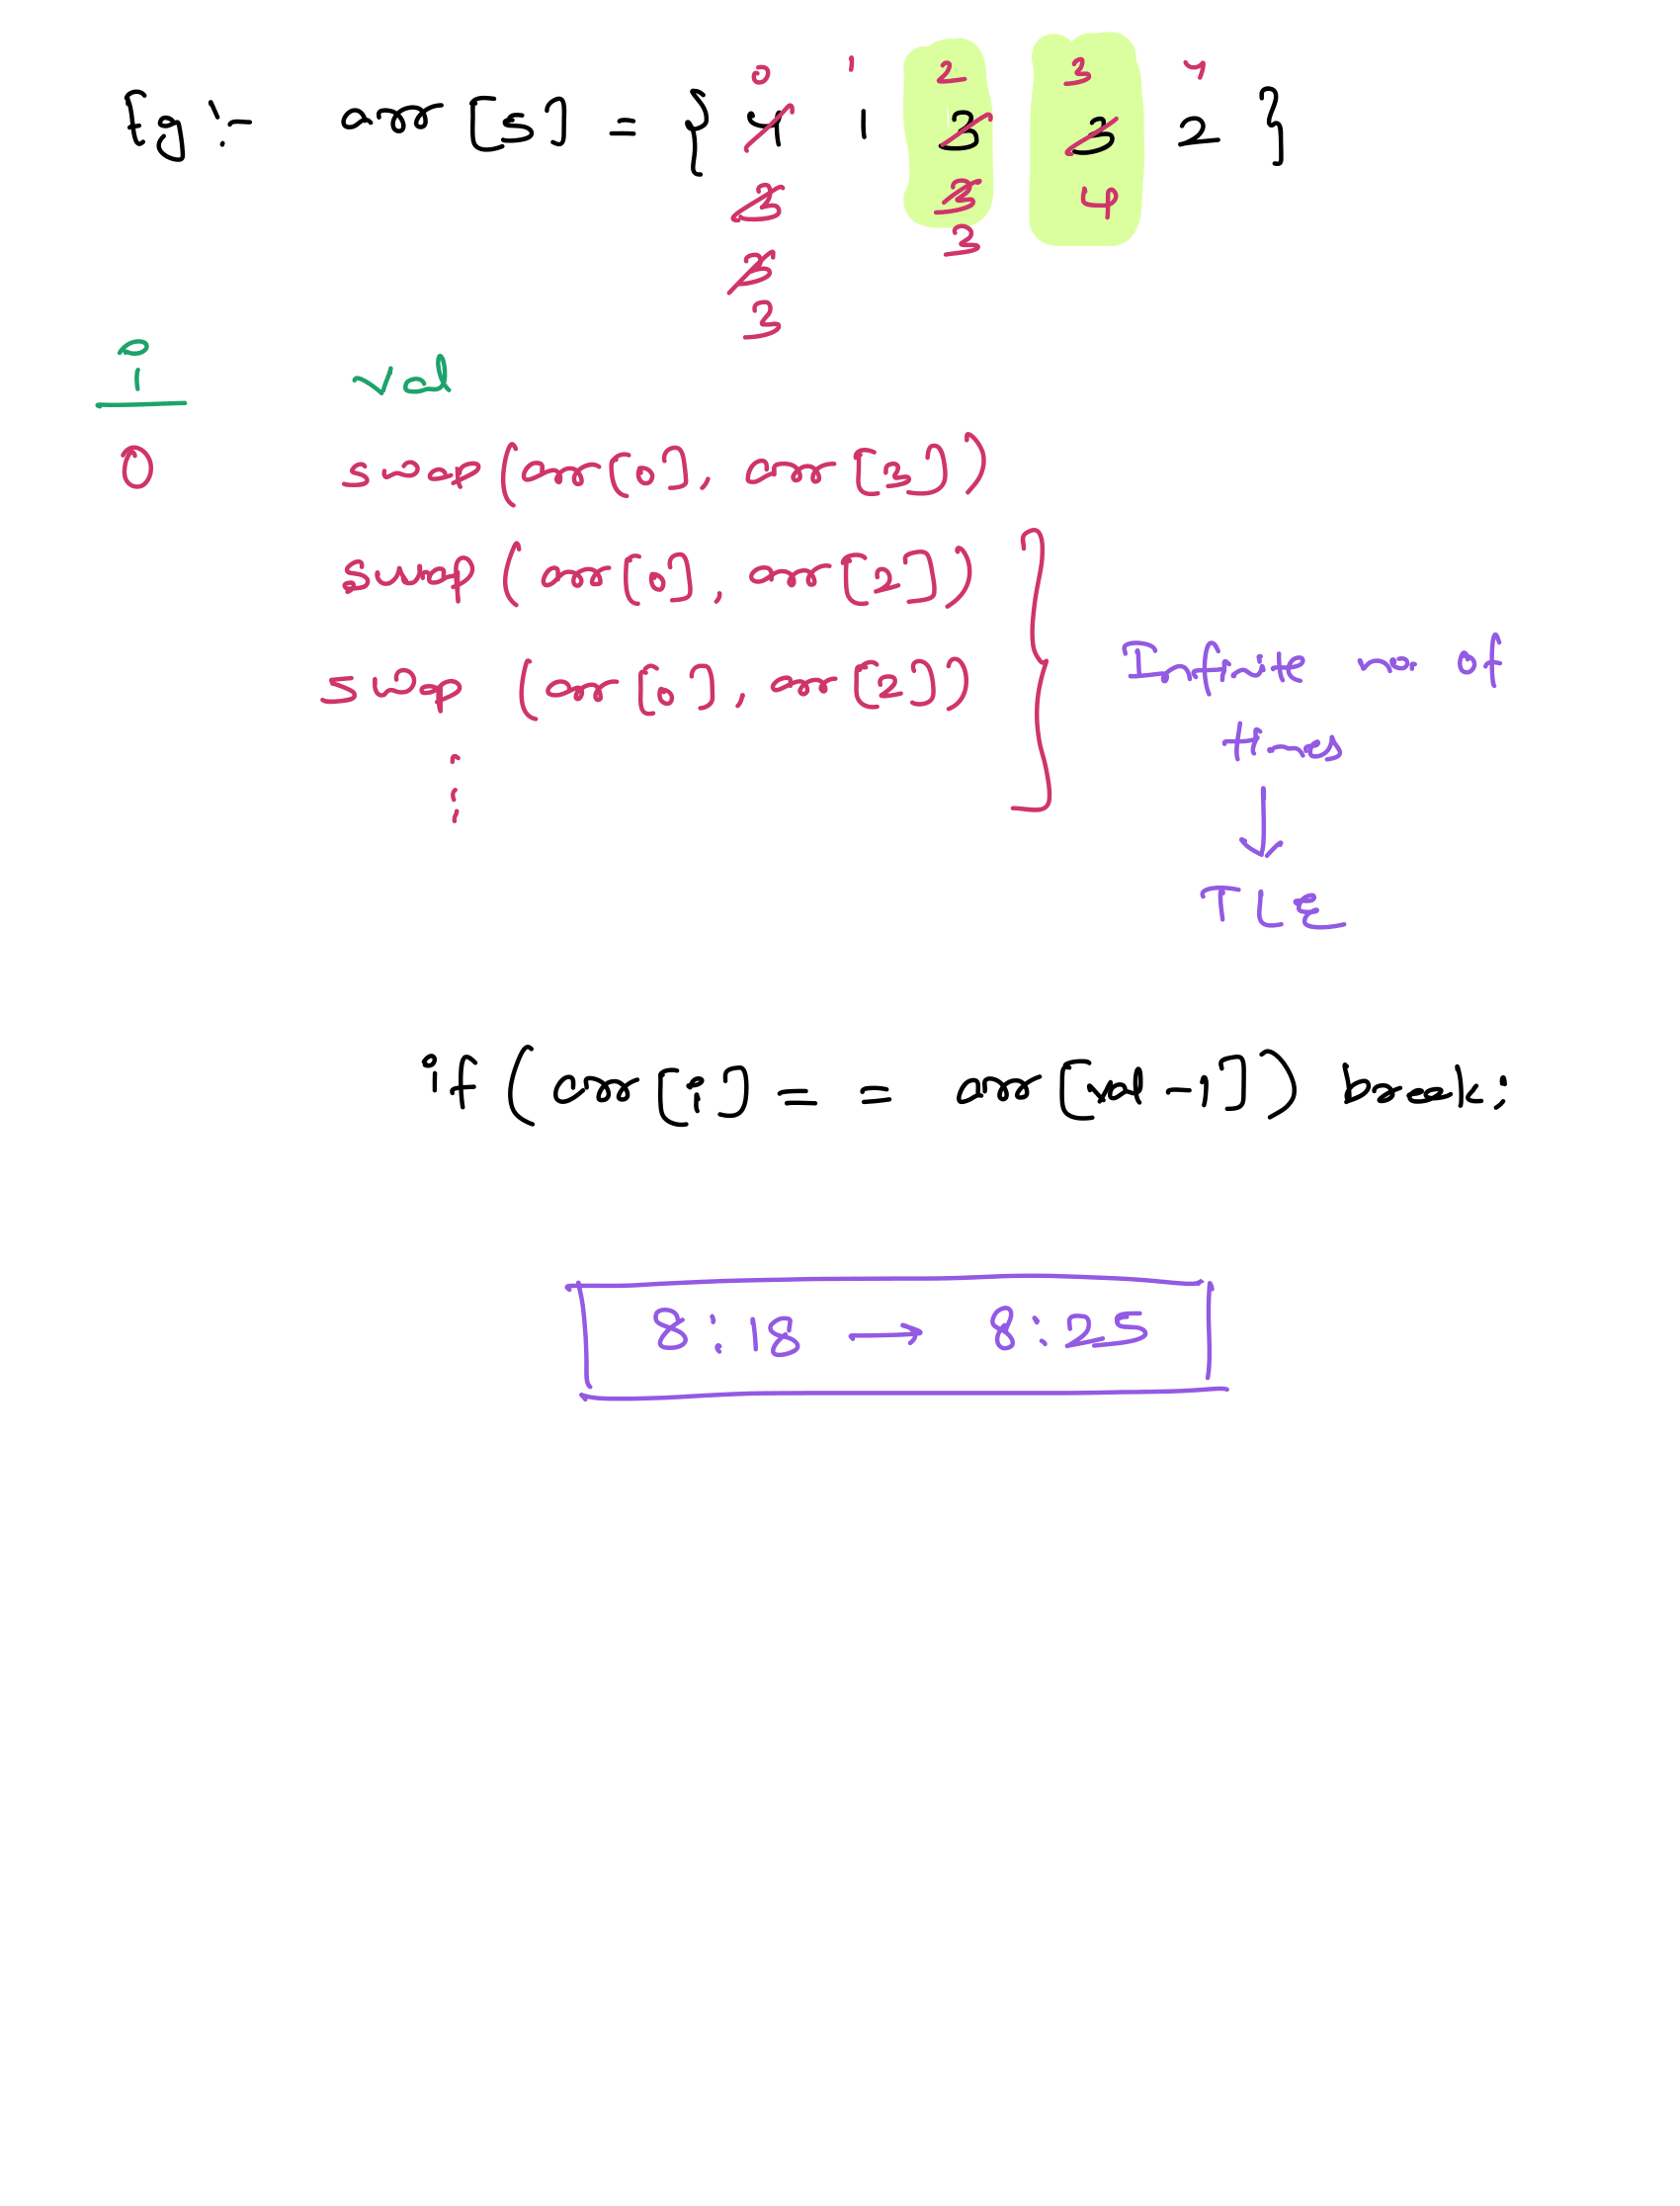 0 1 2 3 4
Eg :- arr [5] = { 4 1 3 3 2 }
3 3 4
3 3
3
i val
0 swap (arr[0], arr[3])
swap (arr[0], arr[2])
swap (arr[0], arr[2])
⋮
Infinite no. of
times
↓
TLE
if (arr[i] == arr[val-1]) break;
8:18 → 8:25